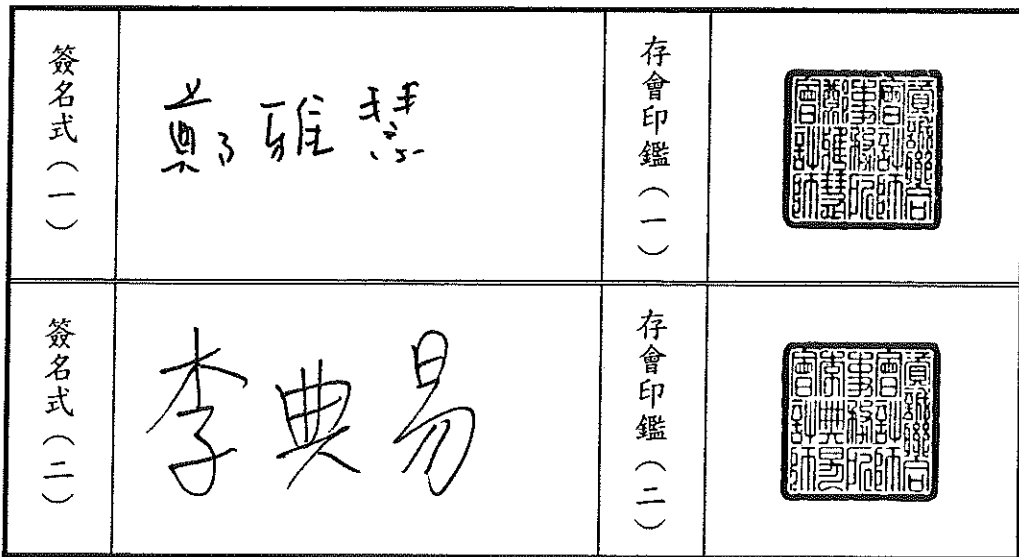 簽名式（一）
鄭雅慧
存會印鑑（一）
貢誠聯合
會計師
事務所
鄭雅慧
會計師
簽名式（二）
李典易
存會印鑑（二）
貢誠聯合
會計師
事務所
李典易
會計師